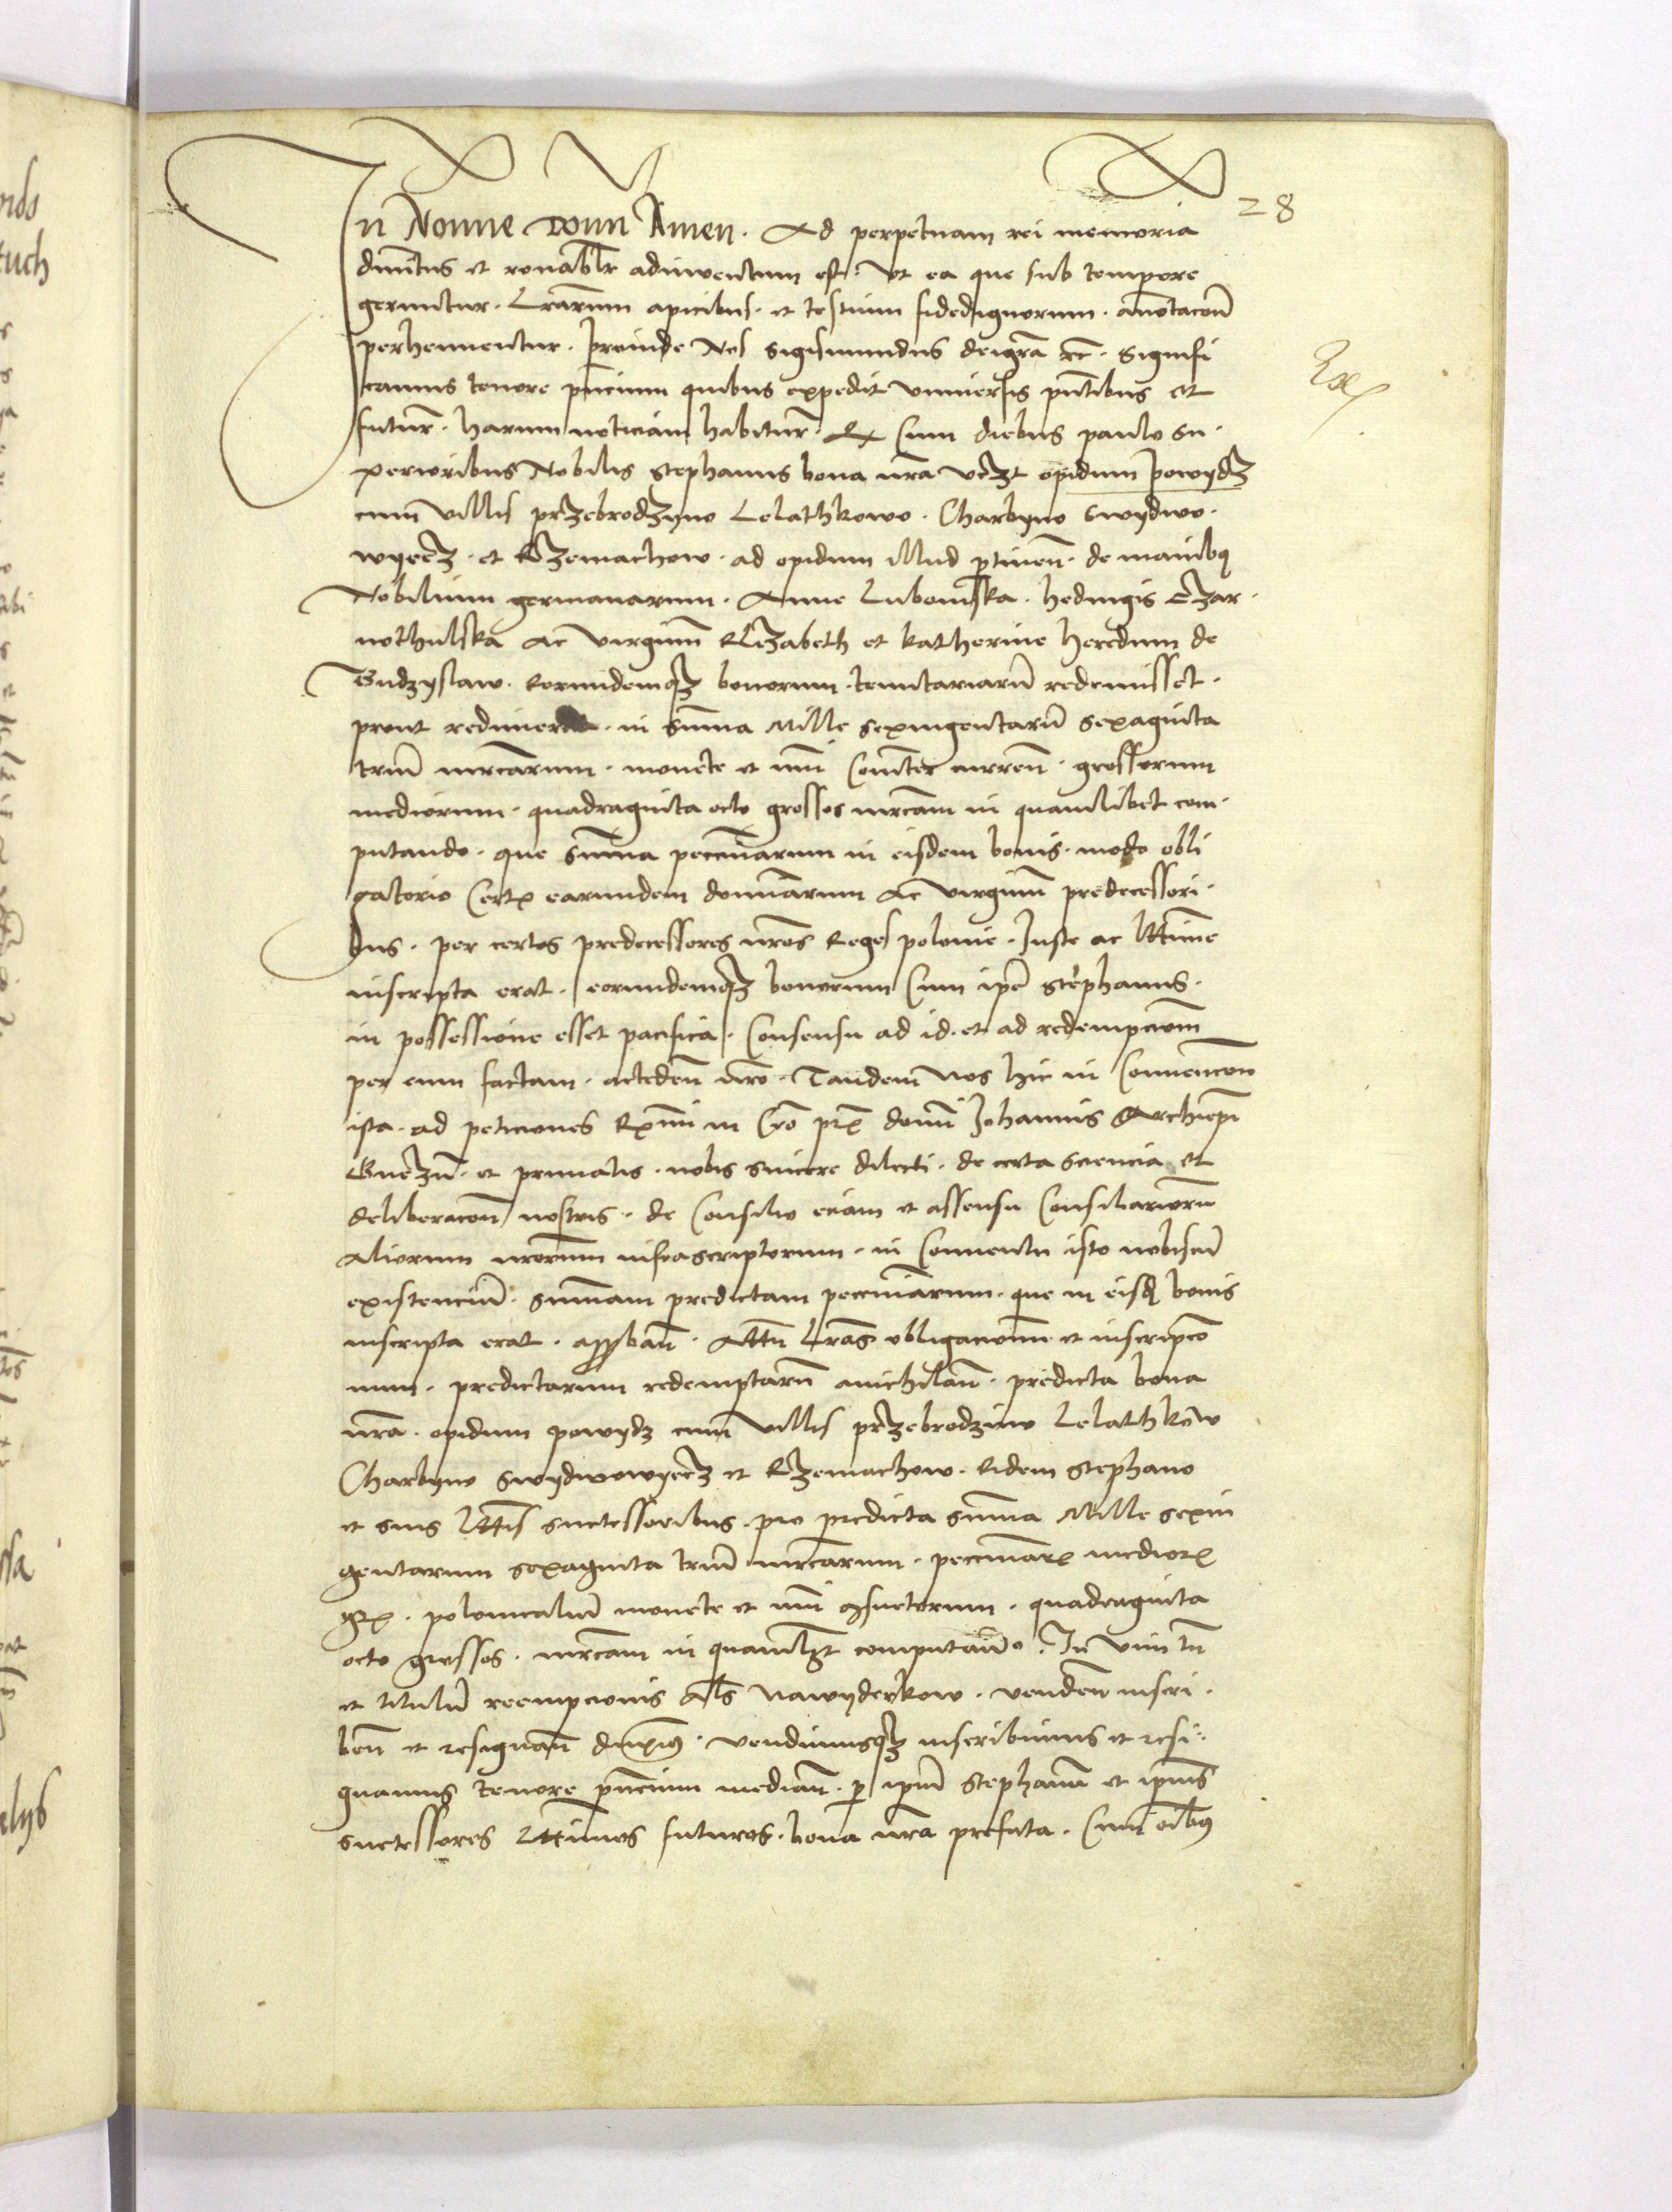 28
In Nomine domini Amen. Ad perpetuam rei memoria
diuinitus et ronablr adinventum est. Vt ea que sub tempore
geruntur. Lrarum apicibus. et testium fidedignorum. annotacon
perhennentur. Proinde Nos Sigismundus deigra etc. Signifi
camus tenore pncium quibus expedit vniuersis pntibus et
futur. harum noticiam habitur. Cum diebus paulo su-
perioribus Nobilis Stephanus bona nra vczt opidum Powydz
cum villis przebrodzyno Lelathkowo. Charbyno Swydwo-
wyecz. et Rzemachow. ad opidum illud ptinen. de manibq
Nobilium germanarum. Anne Lubomska. hedwigis Czar-
nothulska ac virginum Elizabeth et katherine heredum de
Gudzyslaw. Eorundemqz bonorum tenutariarum redemisset.
prout redimerat. in summa Mille sexingentarum sexaginta
trium mrcarum. monete et nui comiter curren. grossorum
mediorum. quadraginta octo grossos mrcam in quamlibet com-
putando. que summa pecuniarum in eisdem bonis. modo obli
gatorio certis earundem dominarum ac virginum predecessori-
bus. per certos predecessores nros Reges polonie. Iuste ac lttime
inscripta erat. eorundemqz bonorum cum ipe Stephanus.
in possessione esset pacifica. Consensu ad id. et ad redempcionem
per eum factam. acceden nro. Tandem Nos hic in Conuencione
ista. ad peticiones Rmi in Cro pris domini Johannis Archiepi
Gneznen. et primatis. nobis sincere dilecti. de certa sciencia et
deliberacon nostris. de Consilio eciam et assensu Consiliariorum
aliorum nrorum infrascriptorum. in Conuentu isto nobiscum
existencium. summam predictam pecuniarum. que in eisd bonis
inscripta erat. approban. Attn lras obligacionum et inscripcio
num. predictarum redemptarum anichilan. predicta bona
nra. opidum powydz cum villis przebrodzino Lelathkow
Charbyno Swydwowyecz et Rzemachow. Eidem Stephano
et suis lttis successoribus. pro predicta summa Mille sexin
gentarum sexaginta trium mrcarum. pecuniar medior
gr. polonicalium monete et nui consuetorum. quadraginta
octo grossos. mrcam in quamlzt computando. In vim tn
et titulum reempcionis als Nawyderkow. venden inscri-
ben et resignan duximus. vendimusqz inscribimus et resi-
gnamus tenore pncium median. p ipum Stephanum et ipius
successores lttimos futuros. bona nra prefata. Cum oibus